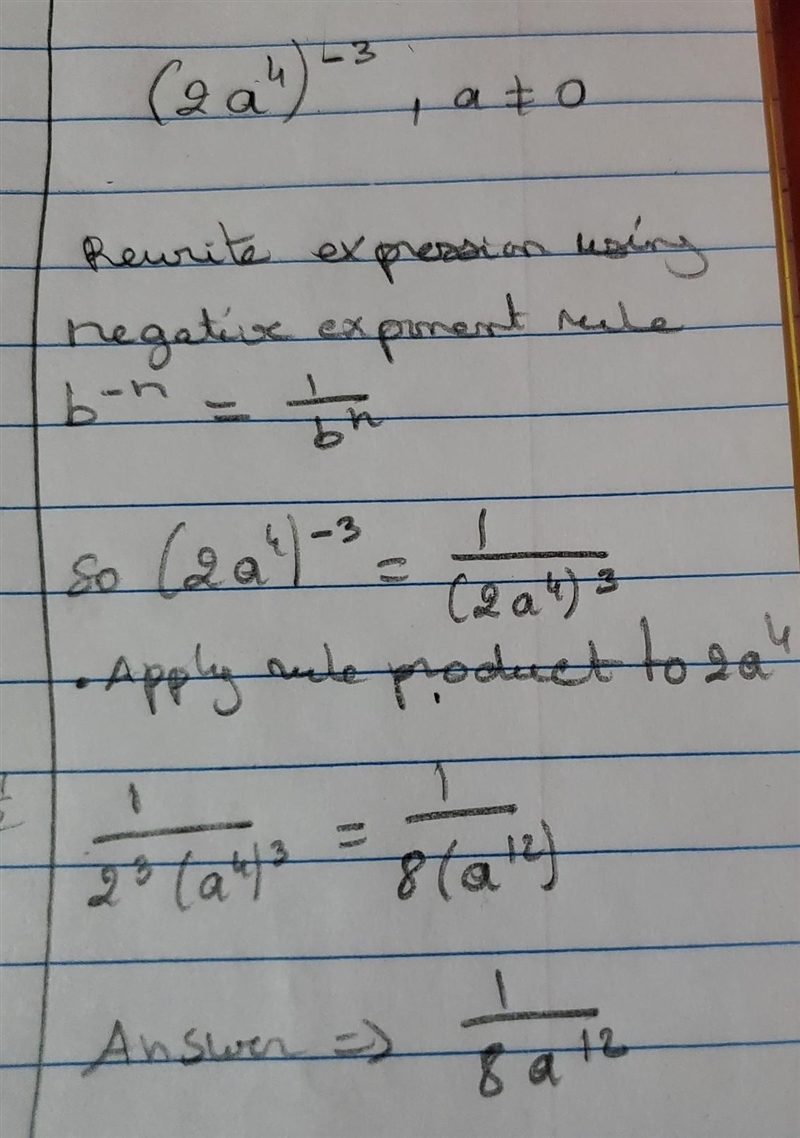 (2a⁴)⁻³, a ≠ 0
Rewrite expression using
negative exponent rule
b⁻ⁿ = 1/bⁿ
So (2a⁴)⁻³ = 1/(2a⁴)³
• Apply rule product to 2a⁴
1/2³(a⁴)³ = 1/8(a¹²)
Answer => 1/8a¹²